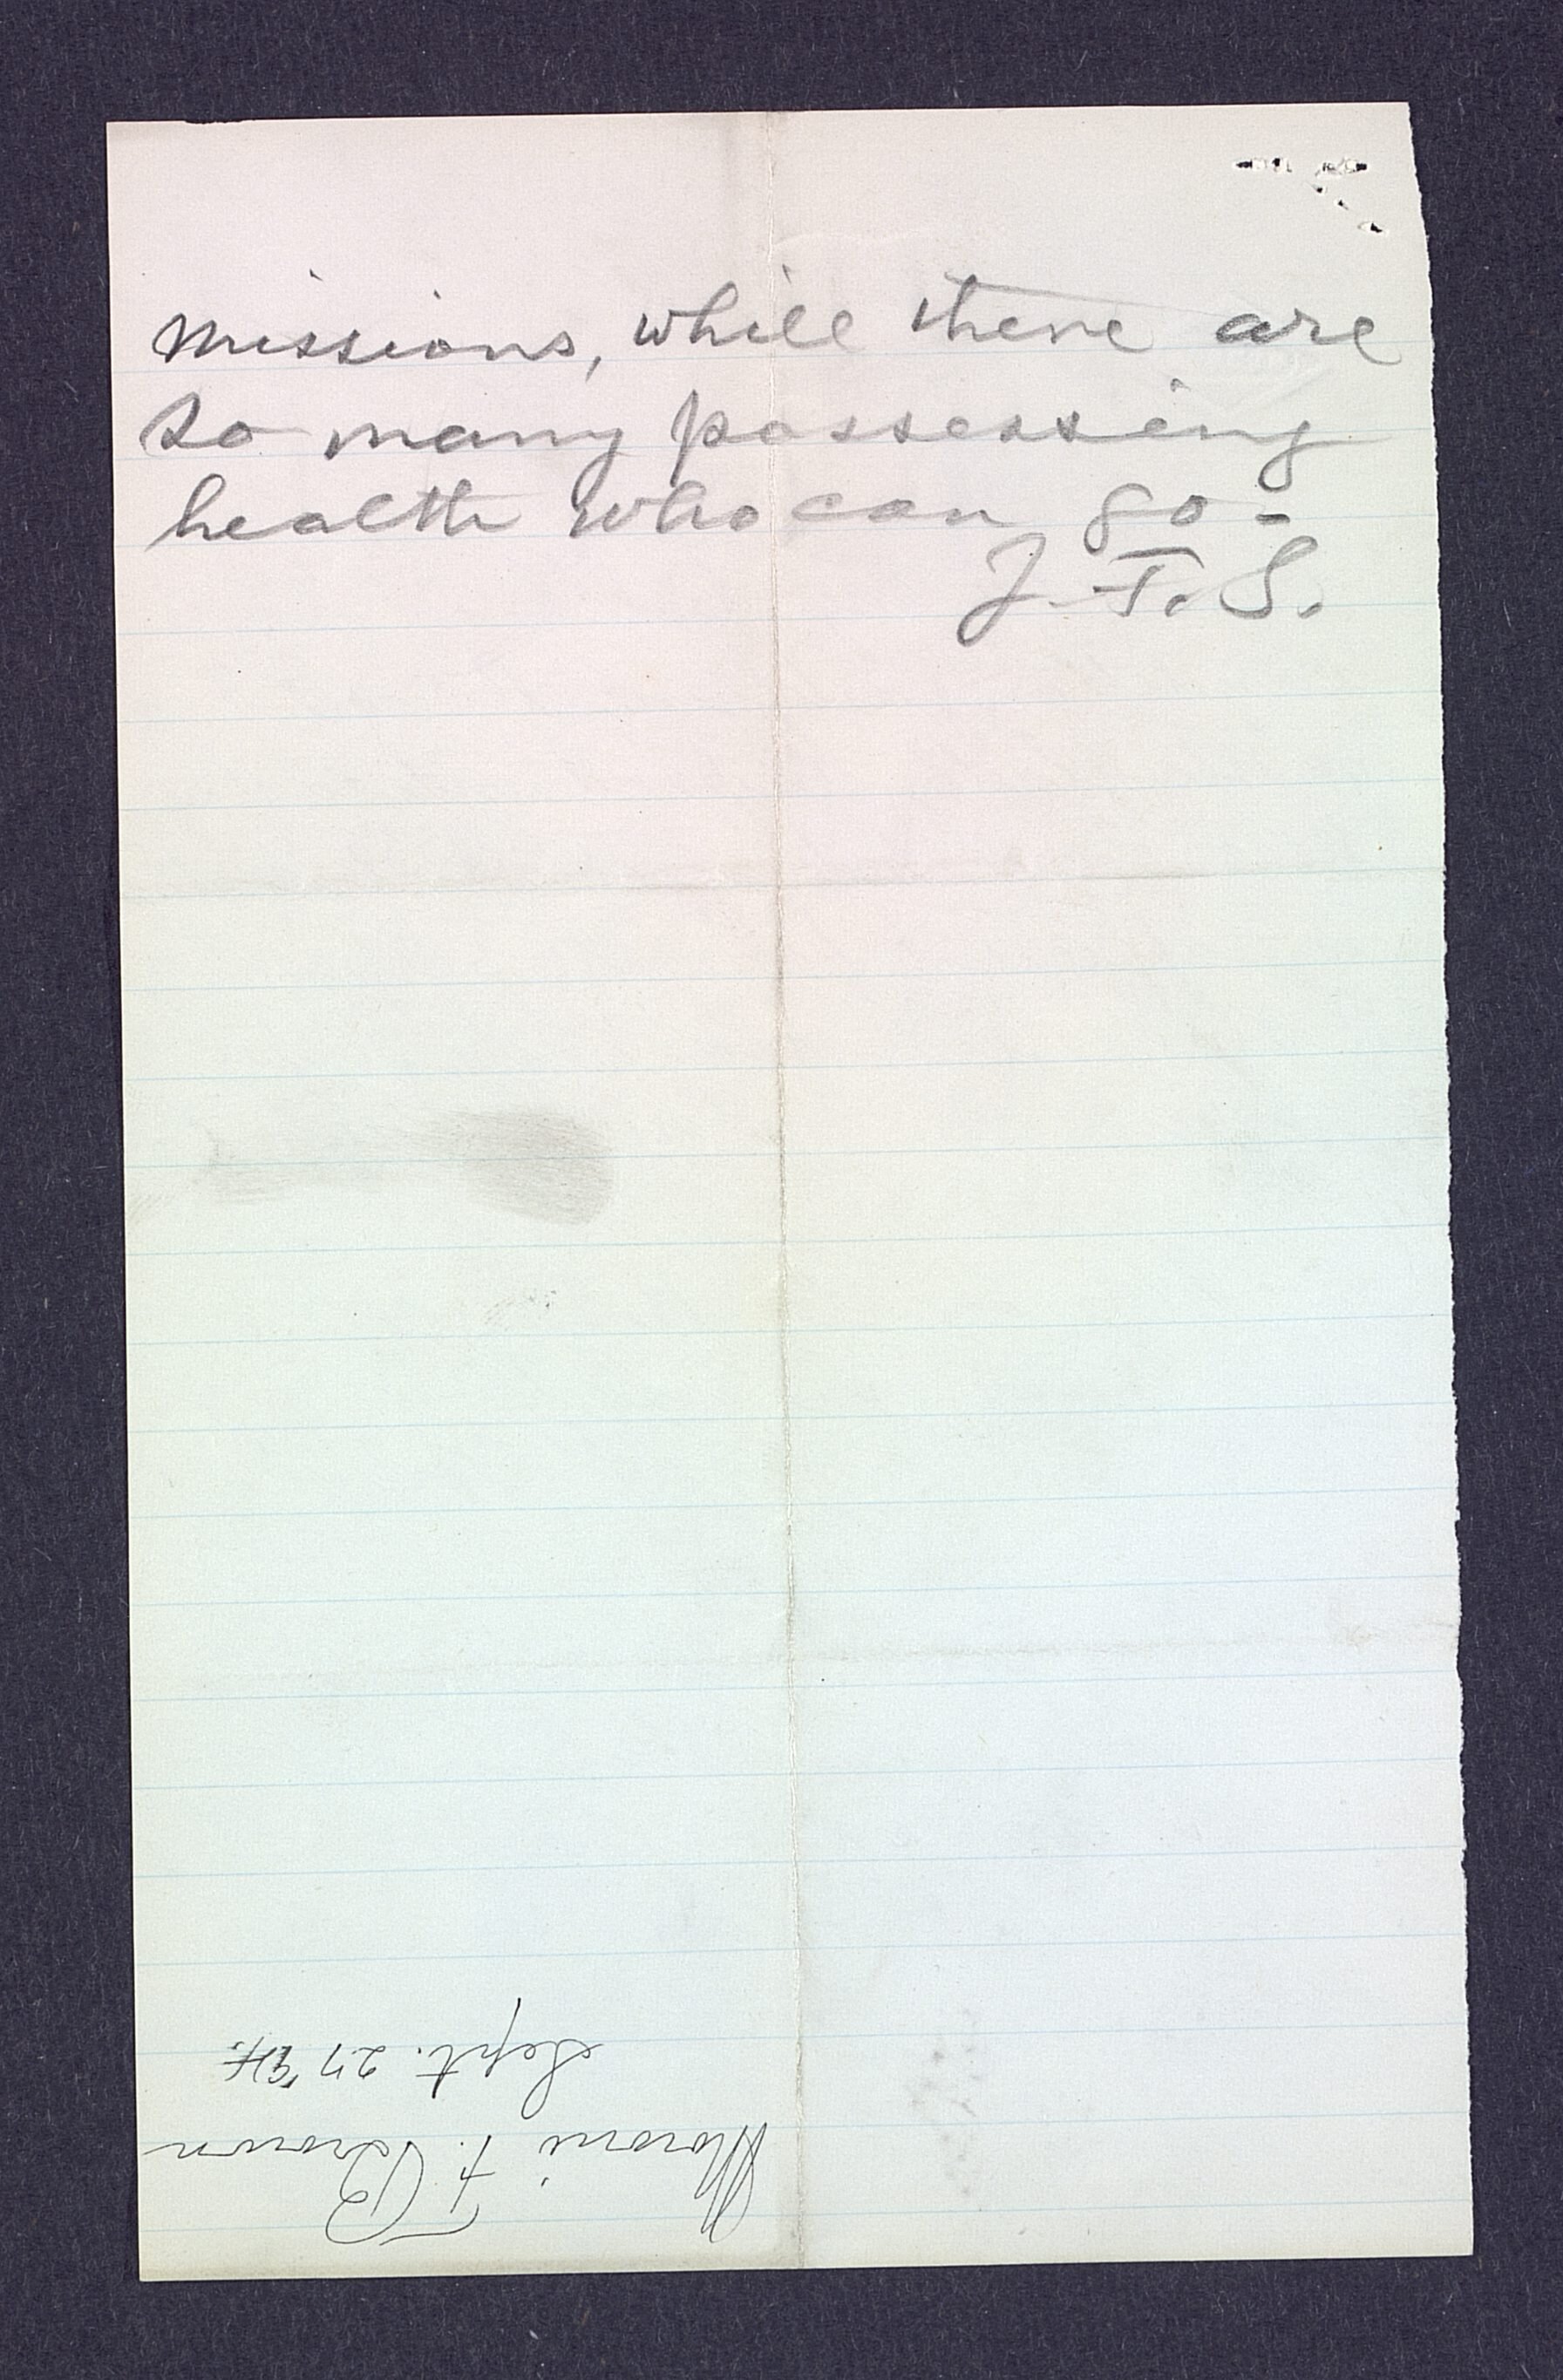 missions, while there are
so many possessing
health who can go -
J. F. S.
Moroni F. Brown
Sept. 27 '94.